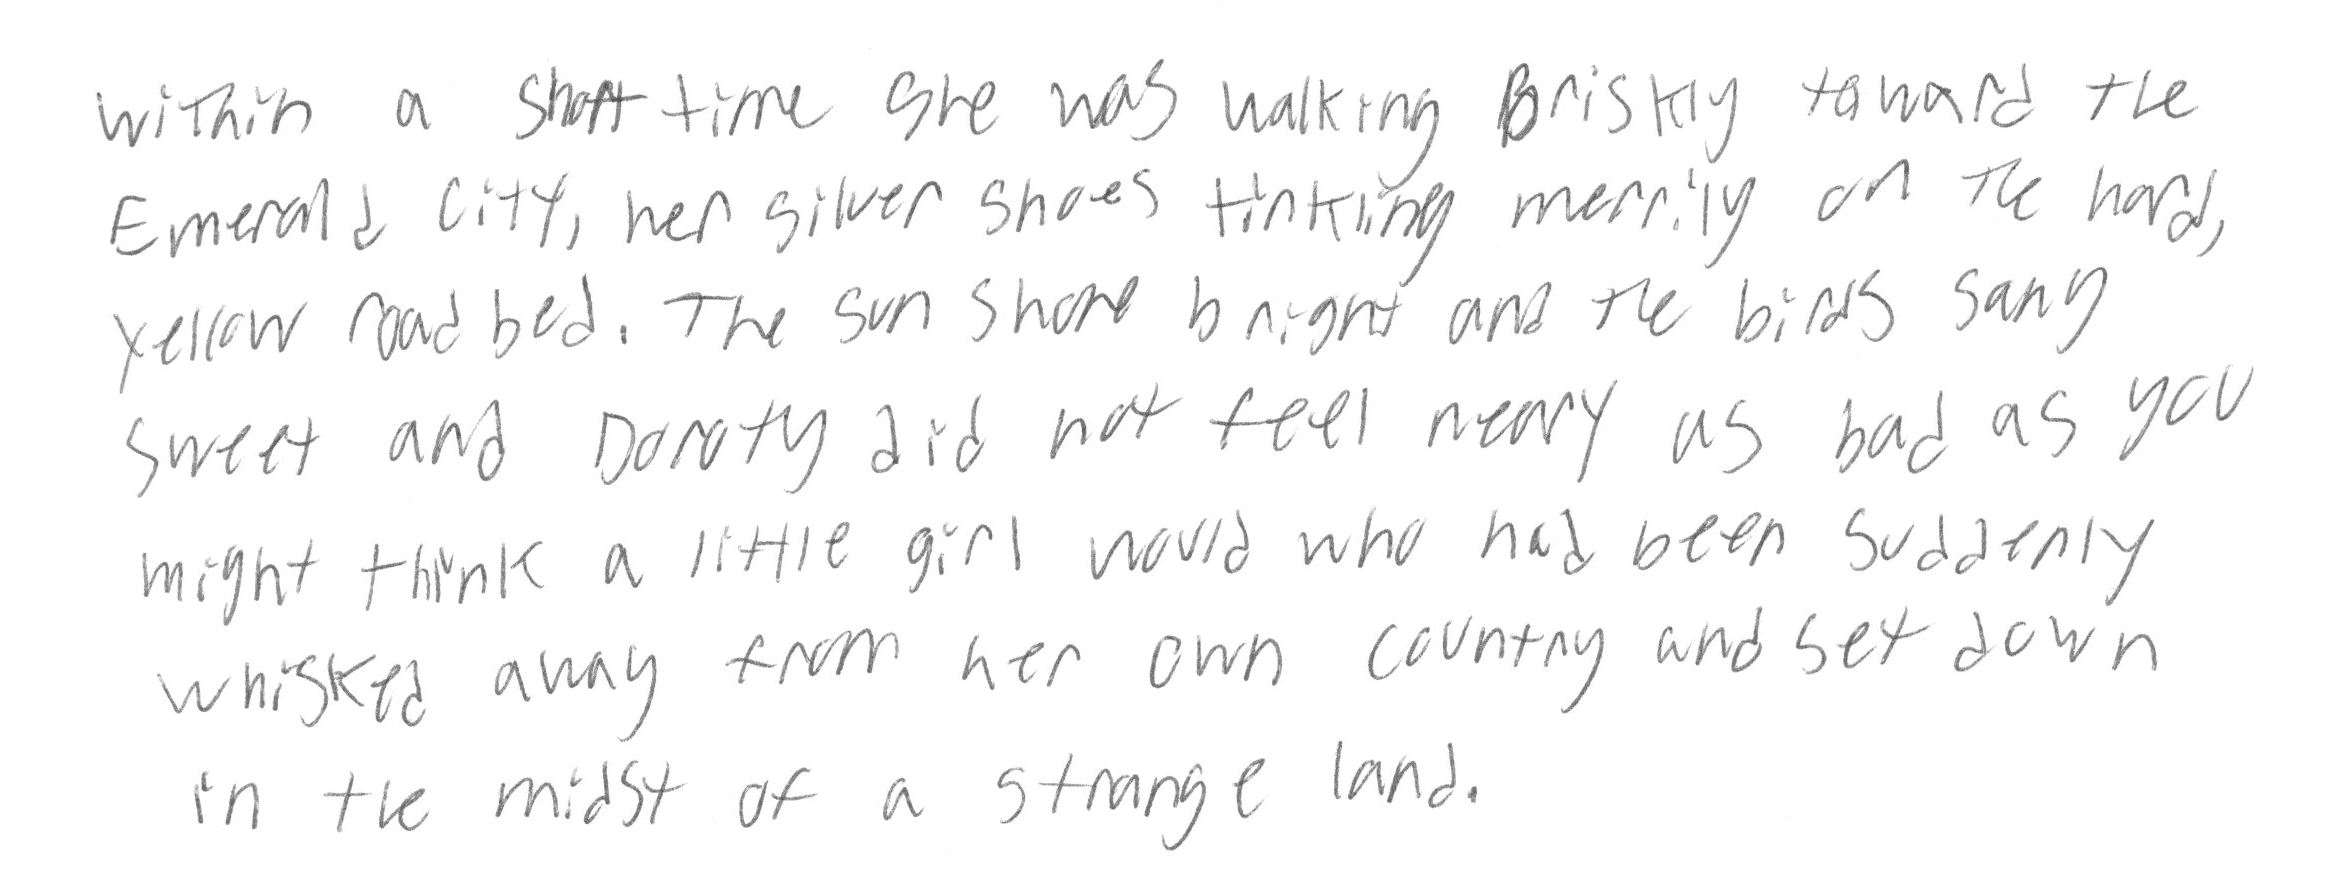 within a short time she was walking Briskly toward the
Emerald City, her silver shoes tinkling merrily on the hard,
yellow road bed. The sun shone bright and the birds sang
sweet and Doroty did not feel neary as bad as you
might think a little girl would who had been suddenly
whisked away from her own country and set down
in the midst of a strange land.